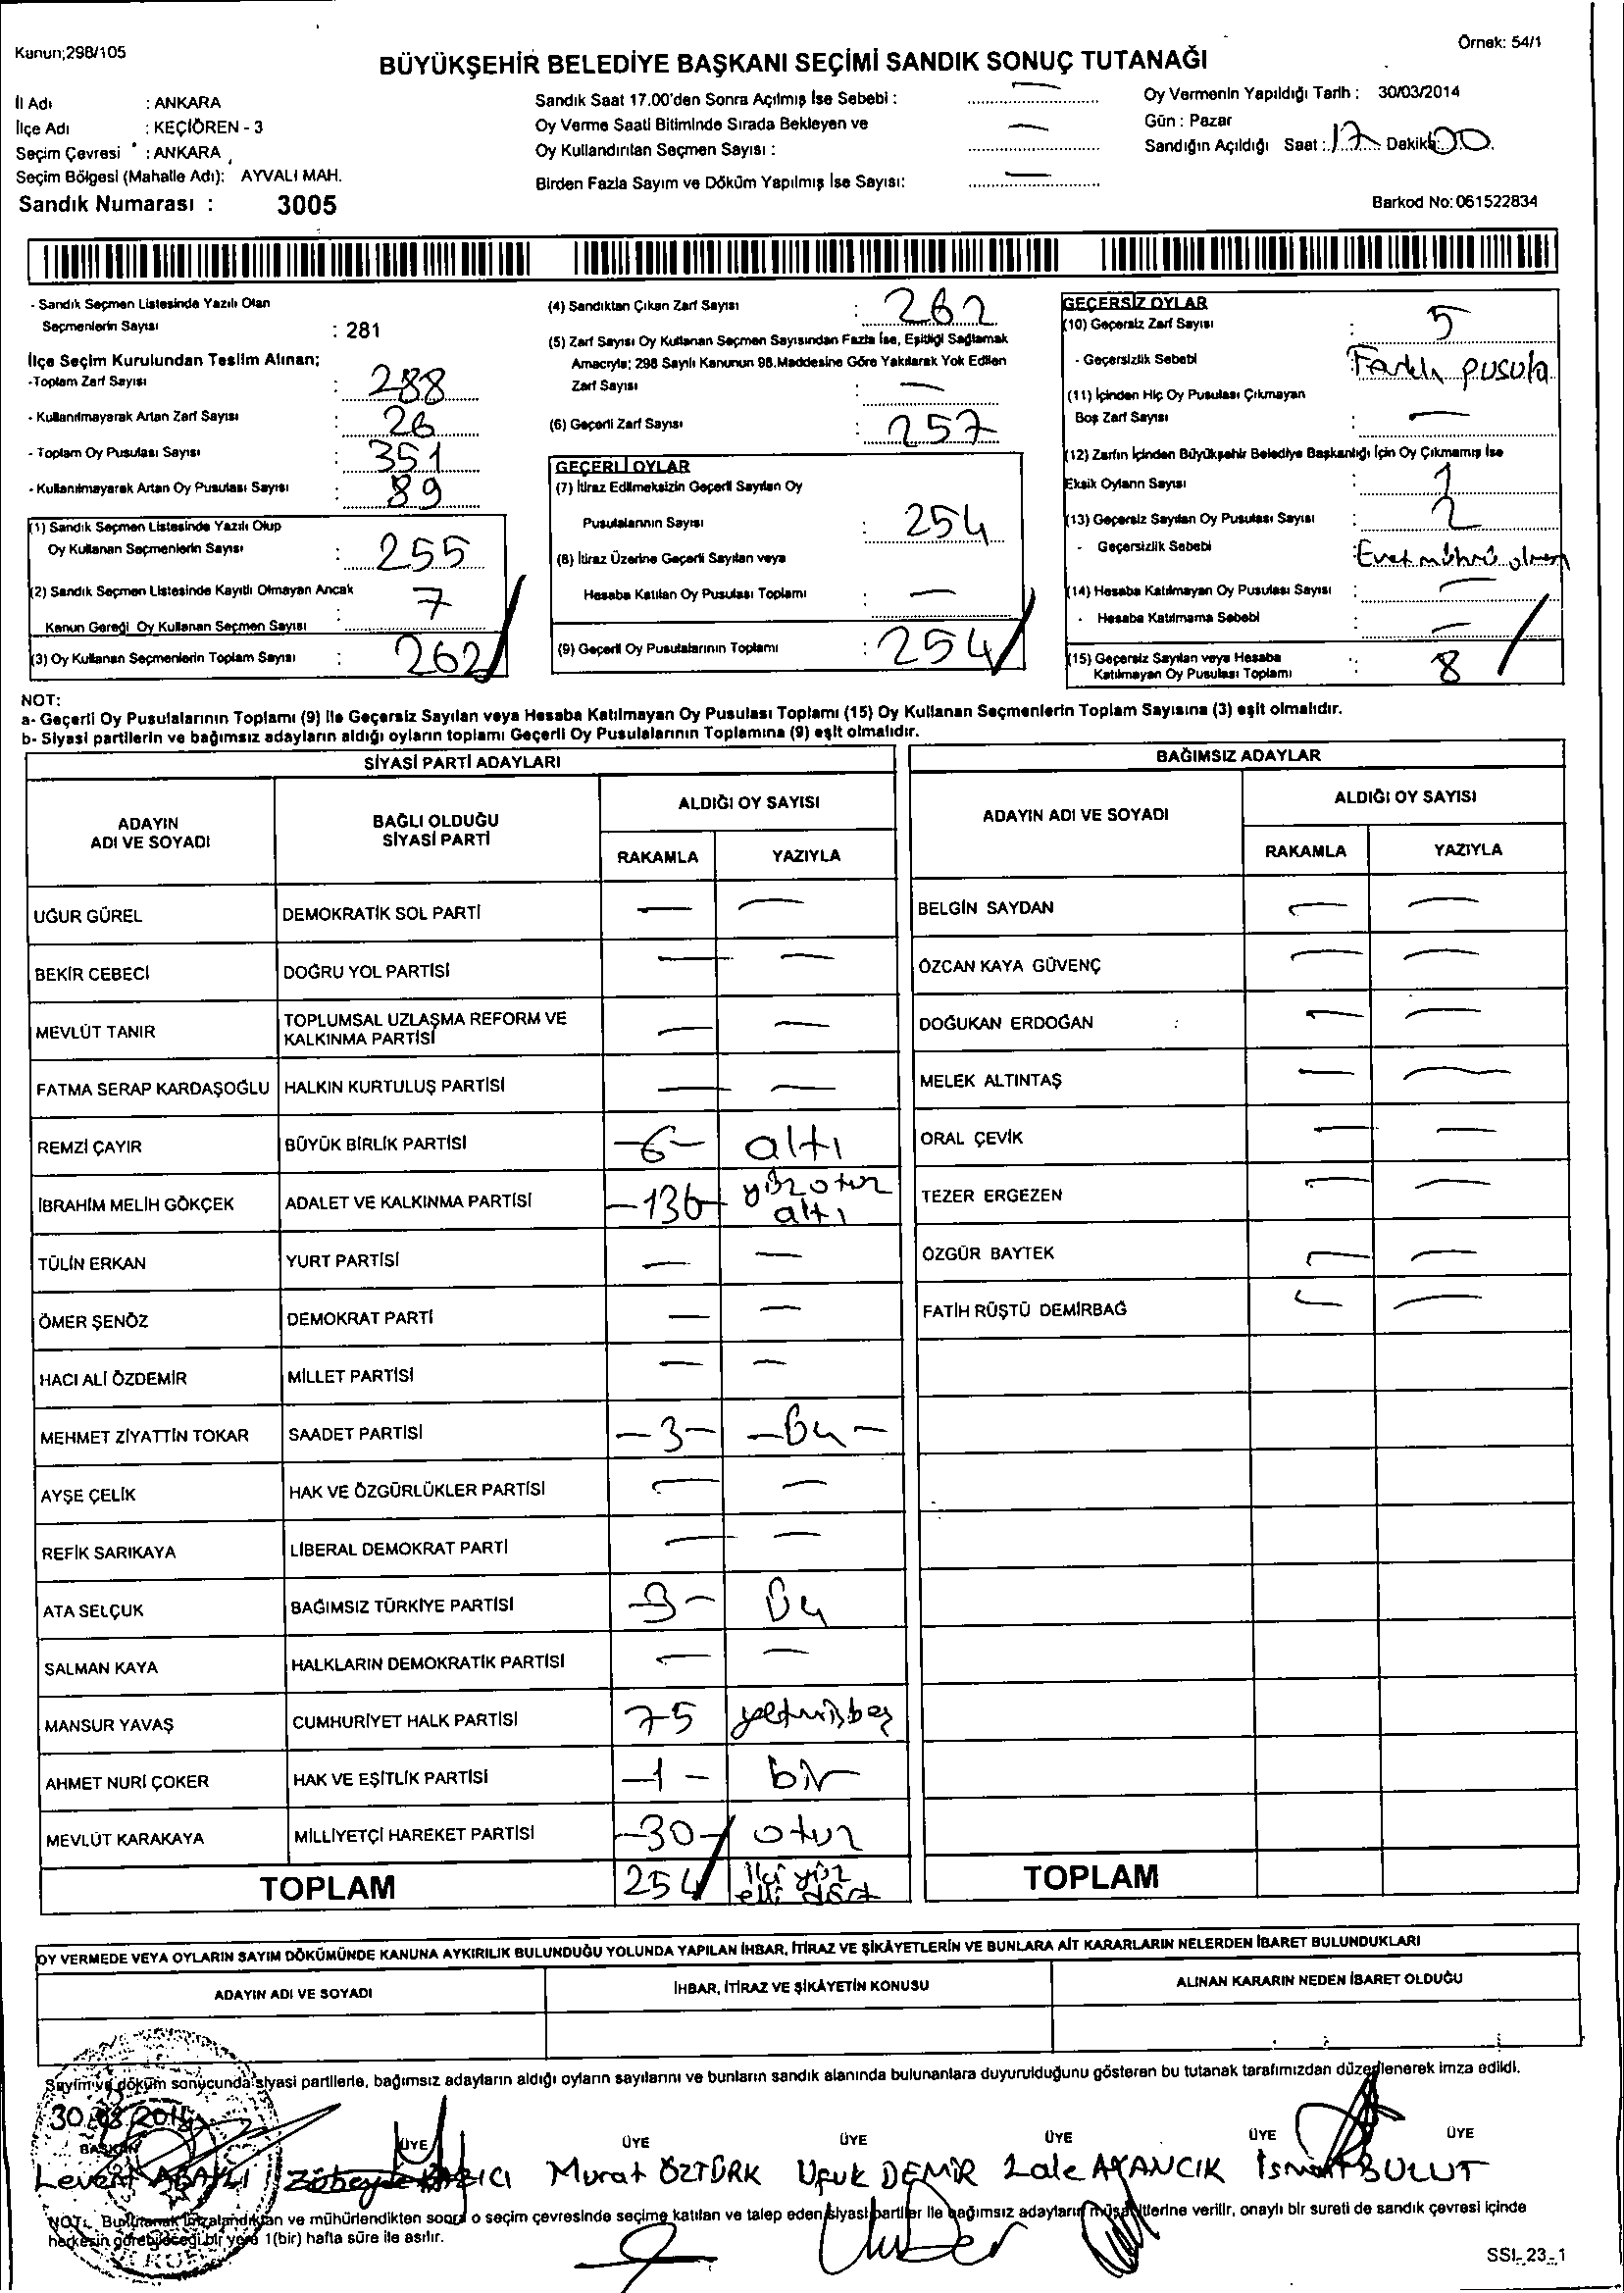 Kanun;298/105
Örnek: 54/1
BÜYÜKŞEHİR BELEDİYE BAŞKANI SEÇİMİ SANDIK SONUÇ TUTANAĞI
İl Adı : ANKARA
İlçe Adı : KEÇİÖREN - 3
Seçim Çevresi : ANKARA
Seçim Bölgesi (Mahalle Adı): AYVALI MAH.
Sandık Numarası : 3005
Sandık Saat 17.00'den Sonra Açılmış İse Sebebi : —
Oy Verme Saati Bitiminde Sırada Bekleyen ve
Oy Kullandırılan Seçmen Sayısı : —
Birden Fazla Sayım ve Döküm Yapılmış İse Sayısı: —
Oy Vermenin Yapıldığı Tarih : 30/03/2014
Gün : Pazar
Sandığın Açıldığı Saat : 17 Dakika: 00
Barkod No: 061522834
- Sandık Seçmen Listesinde Yazılı Olan
Seçmenlerin Sayısı : 281
İlçe Seçim Kurulundan Teslim Alınan;
-Toplam Zarf Sayısı : 288
- Kullanılmayarak Artan Zarf Sayısı : 26
- Toplam Oy Pusulası Sayısı : 351
- Kullanılmayarak Artan Oy Pusulası Sayısı : 89
(1) Sandık Seçmen Listesinde Yazılı Olup
Oy Kullanan Seçmenlerin Sayısı : 255
(2) Sandık Seçmen Listesinde Kayıtlı Olmayan Ancak
Kanun Gereği Oy Kullanan Seçmen Sayısı : 7
(3) Oy Kullanan Seçmenlerin Toplam Sayısı : 262
(4) Sandıktan Çıkan Zarf Sayısı : 262
(5) Zarf Sayısı Oy Kullanan Seçmen Sayısından Fazla İse, Eşitliği Sağlamak
Amacıyla; 298 Sayılı Kanunun 98.Maddesine Göre Yakılarak Yok Edilen
Zarf Sayısı : —
(6) Geçerli Zarf Sayısı : 257
GEÇERLİ OYLAR
(7) İtiraz Edilmeksizin Geçerli Sayılan Oy
Pusulalarının Sayısı : 254
(8) İtiraz Üzerine Geçerli Sayılan veya
Hesaba Katılan Oy Pusulası Toplamı : —
(9) Geçerli Oy Pusulalarının Toplamı : 254
GEÇERSİZ OYLAR
(10) Geçersiz Zarf Sayısı : 5
- Geçersizlik Sebebi : Farklı pusula
(11) İçinden Hiç Oy Pusulası Çıkmayan
Boş Zarf Sayısı : —
(12) Zarfın İçinden Büyükşehir Belediye Başkanlığı İçin Oy Çıkmamış İse
Eksik Oyların Sayısı : 1
(13) Geçersiz Sayılan Oy Pusulası Sayısı : 2
- Geçersizlik Sebebi : Evet mührü olmayan
(14) Hesaba Katılmayan Oy Pusulası Sayısı : —
- Hesaba Katılmama Sebebi : —
(15) Geçersiz Sayılan veya Hesaba
Katılmayan Oy Pusulası Toplamı : 8
NOT:
a- Geçerli Oy Pusulalarının Toplamı (9) ile Geçersiz Sayılan veya Hesaba Katılmayan Oy Pusulası Toplamı (15) Oy Kullanan Seçmenlerin Toplam Sayısına (3) eşit olmalıdır.
b- Siyasi partilerin ve bağımsız adayların aldığı oyların toplamı Geçerli Oy Pusulalarının Toplamına (9) eşit olmalıdır.
SİYASİ PARTİ ADAYLARI
ADAYIN ADI VE SOYADI
BAĞLI OLDUĞU SİYASİ PARTİ
ALDIĞI OY SAYISI
RAKAMLA YAZIYLA
UĞUR GÜREL DEMOKRATİK SOL PARTİ — —
BEKİR CEBECİ DOĞRU YOL PARTİSİ — —
MEVLÜT TANIR TOPLUMSAL UZLAŞMA REFORM VE KALKINMA PARTİSİ — —
FATMA SERAP KARDAŞOĞLU HALKIN KURTULUŞ PARTİSİ — —
REMZİ ÇAYIR BÜYÜK BİRLİK PARTİSİ -6- altı
İBRAHİM MELİH GÖKÇEK ADALET VE KALKINMA PARTİSİ -136- yüzotuz altı
TÜLİN ERKAN YURT PARTİSİ — —
ÖMER ŞENÖZ DEMOKRAT PARTİ — —
HACI ALİ ÖZDEMİR MİLLET PARTİSİ — —
MEHMET ZİYATTİN TOKAR SAADET PARTİSİ -3- -üç-
AYŞE ÇELİK HAK VE ÖZGÜRLÜKLER PARTİSİ — —
REFİK SARIKAYA LİBERAL DEMOKRAT PARTİ — —
ATA SELÇUK BAĞIMSIZ TÜRKİYE PARTİSİ -3- üç
SALMAN KAYA HALKLARIN DEMOKRATİK PARTİSİ — —
MANSUR YAVAŞ CUMHURİYET HALK PARTİSİ 75 yetmişbeş
AHMET NURİ ÇOKER HAK VE EŞİTLİK PARTİSİ -1- bir
MEVLÜT KARAKAYA MİLLİYETÇİ HAREKET PARTİSİ -30- otuz
TOPLAM 254 iki yüz elli dört
BAĞIMSIZ ADAYLAR
ADAYIN ADI VE SOYADI
ALDIĞI OY SAYISI
RAKAMLA YAZIYLA
BELGİN SAYDAN — —
ÖZCAN KAYA GÜVENÇ — —
DOĞUKAN ERDOĞAN — —
MELEK ALTINTAŞ — —
ORAL ÇEVİK — —
TEZER ERGEZEN — —
ÖZGÜR BAYTEK — —
FATİH RÜŞTÜ DEMİRBAĞ — —
TOPLAM
OY VERMEDE VEYA OYLARIN SAYIM DÖKÜMÜNDE KANUNA AYKIRILIK BULUNDUĞU YOLUNDA YAPILAN İHBAR, İTİRAZ VE ŞİKÂYETLERİN VE BUNLARA AİT KARARLARIN NELERDEN İBARET BULUNDUKLARI
ADAYIN ADI VE SOYADI İHBAR, İTİRAZ VE ŞİKÂYETİN KONUSU ALINAN KARARIN NEDEN İBARET OLDUĞU
Sayım ve döküm sonucunda siyasi partilerle, bağımsız adayların aldığı oyların sayılarını ve bunların sandık alanında bulunanlara duyurulduğunu gösteren bu tutanak tarafımızdan düzenlenerek imza edildi.
BAŞKAN ÜYE ÜYE ÜYE ÜYE ÜYE ÜYE
Levent Murat ÖZTÜRK Ufuk DEMİR Lale AYANCIK İsmail BULUT
NOT: Bu tutanak imzalandıktan ve mühürlendikten sonra o seçim çevresinde seçime katılan ve talep eden siyasi partiler ile bağımsız adayların müşahitlerine verilir, onaylı bir sureti de sandık çevresi içinde
herkesin görebileceği bir yere 1(bir) hafta süre ile asılır.
SSI_23_1